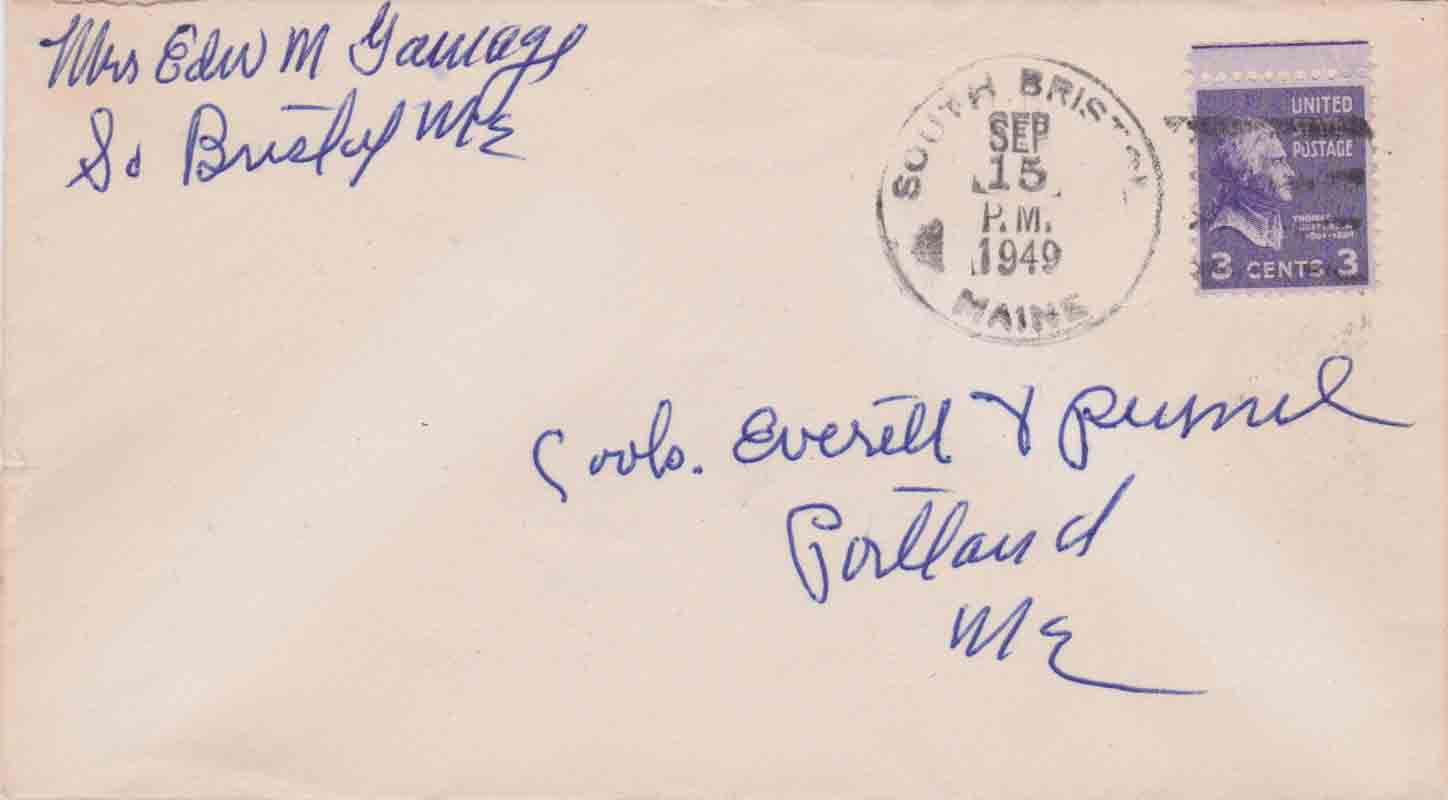 Mrs Edw M Gamage
So Bristol Me
SOUTH BRISTOL
SEP
15
P.M.
1949
MAINE
UNITED
STATES
POSTAGE
THOMAS
JEFFERSON
3 CENTS 3
Everett &
Portland
Me